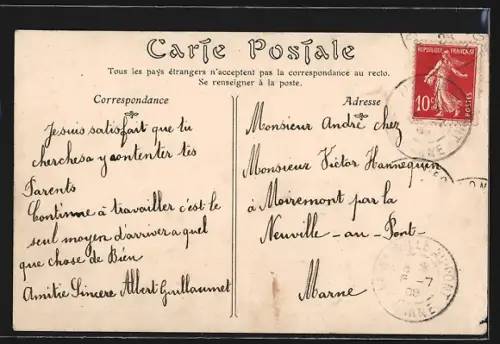 Carte Postale
Tous les pays étrangers n'acceptent pas la correspondance au recto.
Se renseigner à la poste.
Correspondance
Je suis satisfait que tu
cherches a y contenter tes
Parents
Continue à travailler c'est le
seul moyen d'arriver a quel
que chose de Bien
Amitié Sincere Albert Guillaumet
Adresse
Monsieur André chez
Monsieur Victor Hannequin
à Moiremont par la
Neuville-au-Pont-
Marne
REPUBLIQUE FRANÇAISE
10c
POSTES
MARNE
6-7
08
MARNE